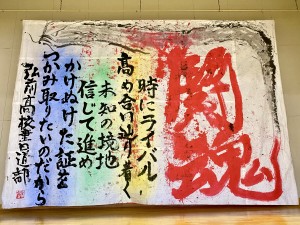 闘魂
時にライバル
高め合い辿り着く
未知の境地
信じて進め
かけぬけた証を
つかみ取りたいのだから
弘前高校書道部